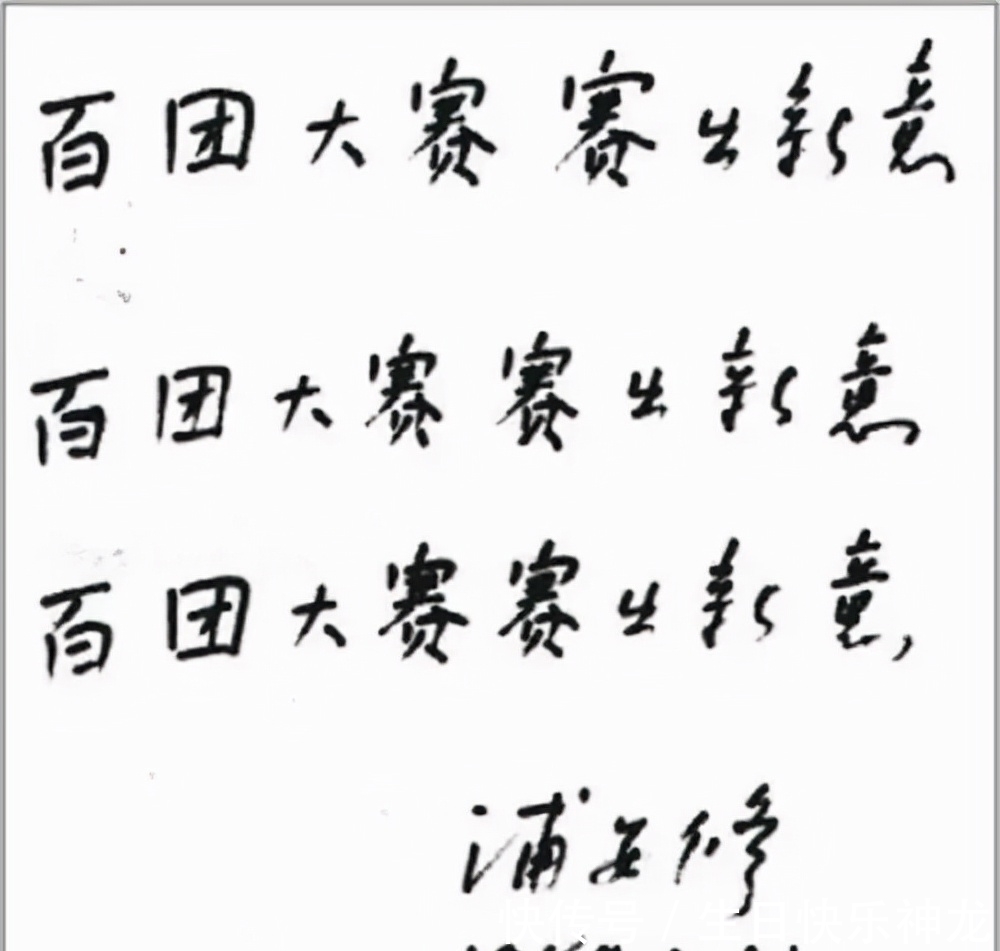 百团大赛赛出新意
百团大赛赛出新意
百团大赛赛出新意,
浦安修
快传号/生日快乐神龙